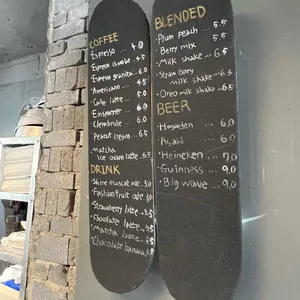 COFFEE
Espresso ... 4.0
Espresso double 4.5
Espresso granita ... 6.0
Americano ... 4.5
Cafe latte ... 5.0
Einspanner ... 6.0
Peanut cream ... 6.5
Matcha
Ice cream latte 6.5
DRINK
Shine muscat ade 5.0
Strawberry latte ... 5.5
Chocolate latte ... 5.5
Matcha latte ... 5.5
Chocolate banana 6.5
BLENDED
Plum peach ... 5.5
Berry mix ... 5.5
Milk shake ... 6.5
Strawberry
milk shake ... 6.5
Oreo milk shake ... 6.5
BEER
Hoegaden ... 6.0
Asahi ... 6.0
Heineken ... 7.0
Guinness ... 9.0
Big wave ... 9.0